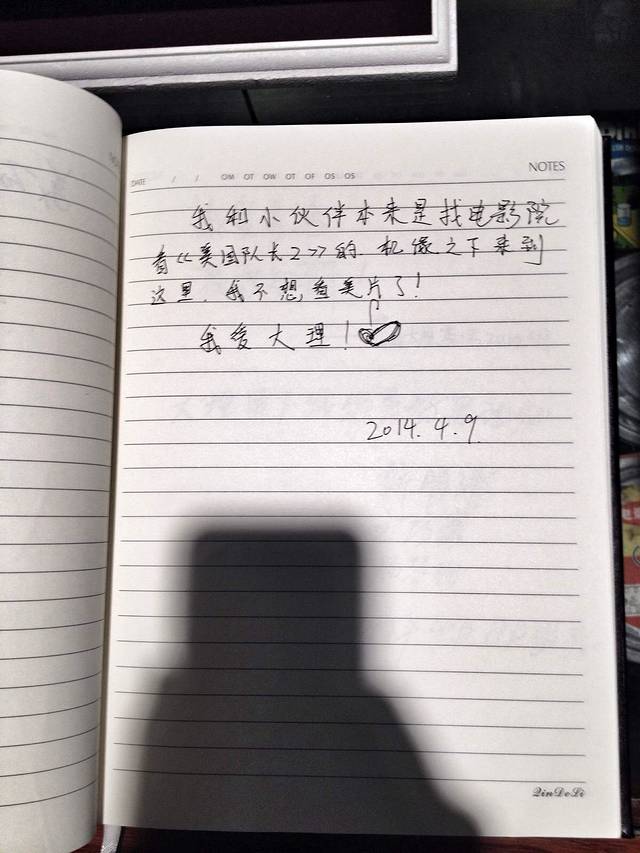 DATE / / OM OT OW OT OF OS OS
NOTES
我和小伙伴本来是找电影院
看《美国队长2》的.机缘之下来到
这里.我不想看美片了!
我爱大理!
2014.4.9.
QinDeLi